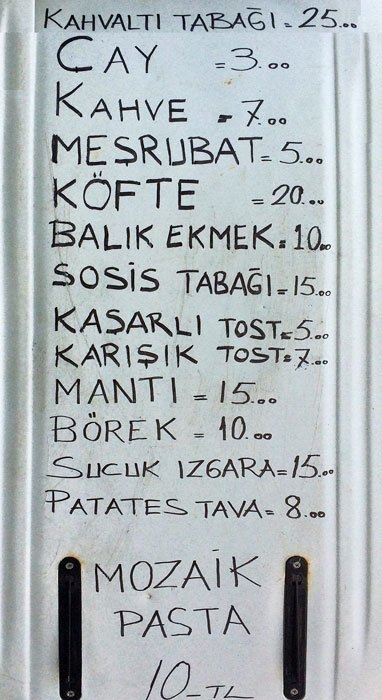 KAHVALTI TABAĞI = 25.00
ÇAY = 3.00
KAHVE = 7.00
MEŞRUBAT = 5.00
KÖFTE = 20.00
BALIK EKMEK = 10.00
SOSİS TABAĞI = 15.00
KAŞARLI TOST = 5.00
KARIŞIK TOST = 7.00
MANTI = 15.00
BÖREK = 10.00
SUCUK IZGARA = 15.00
PATATES TAVA = 8.00
MOZAİK
PASTA
10_TL